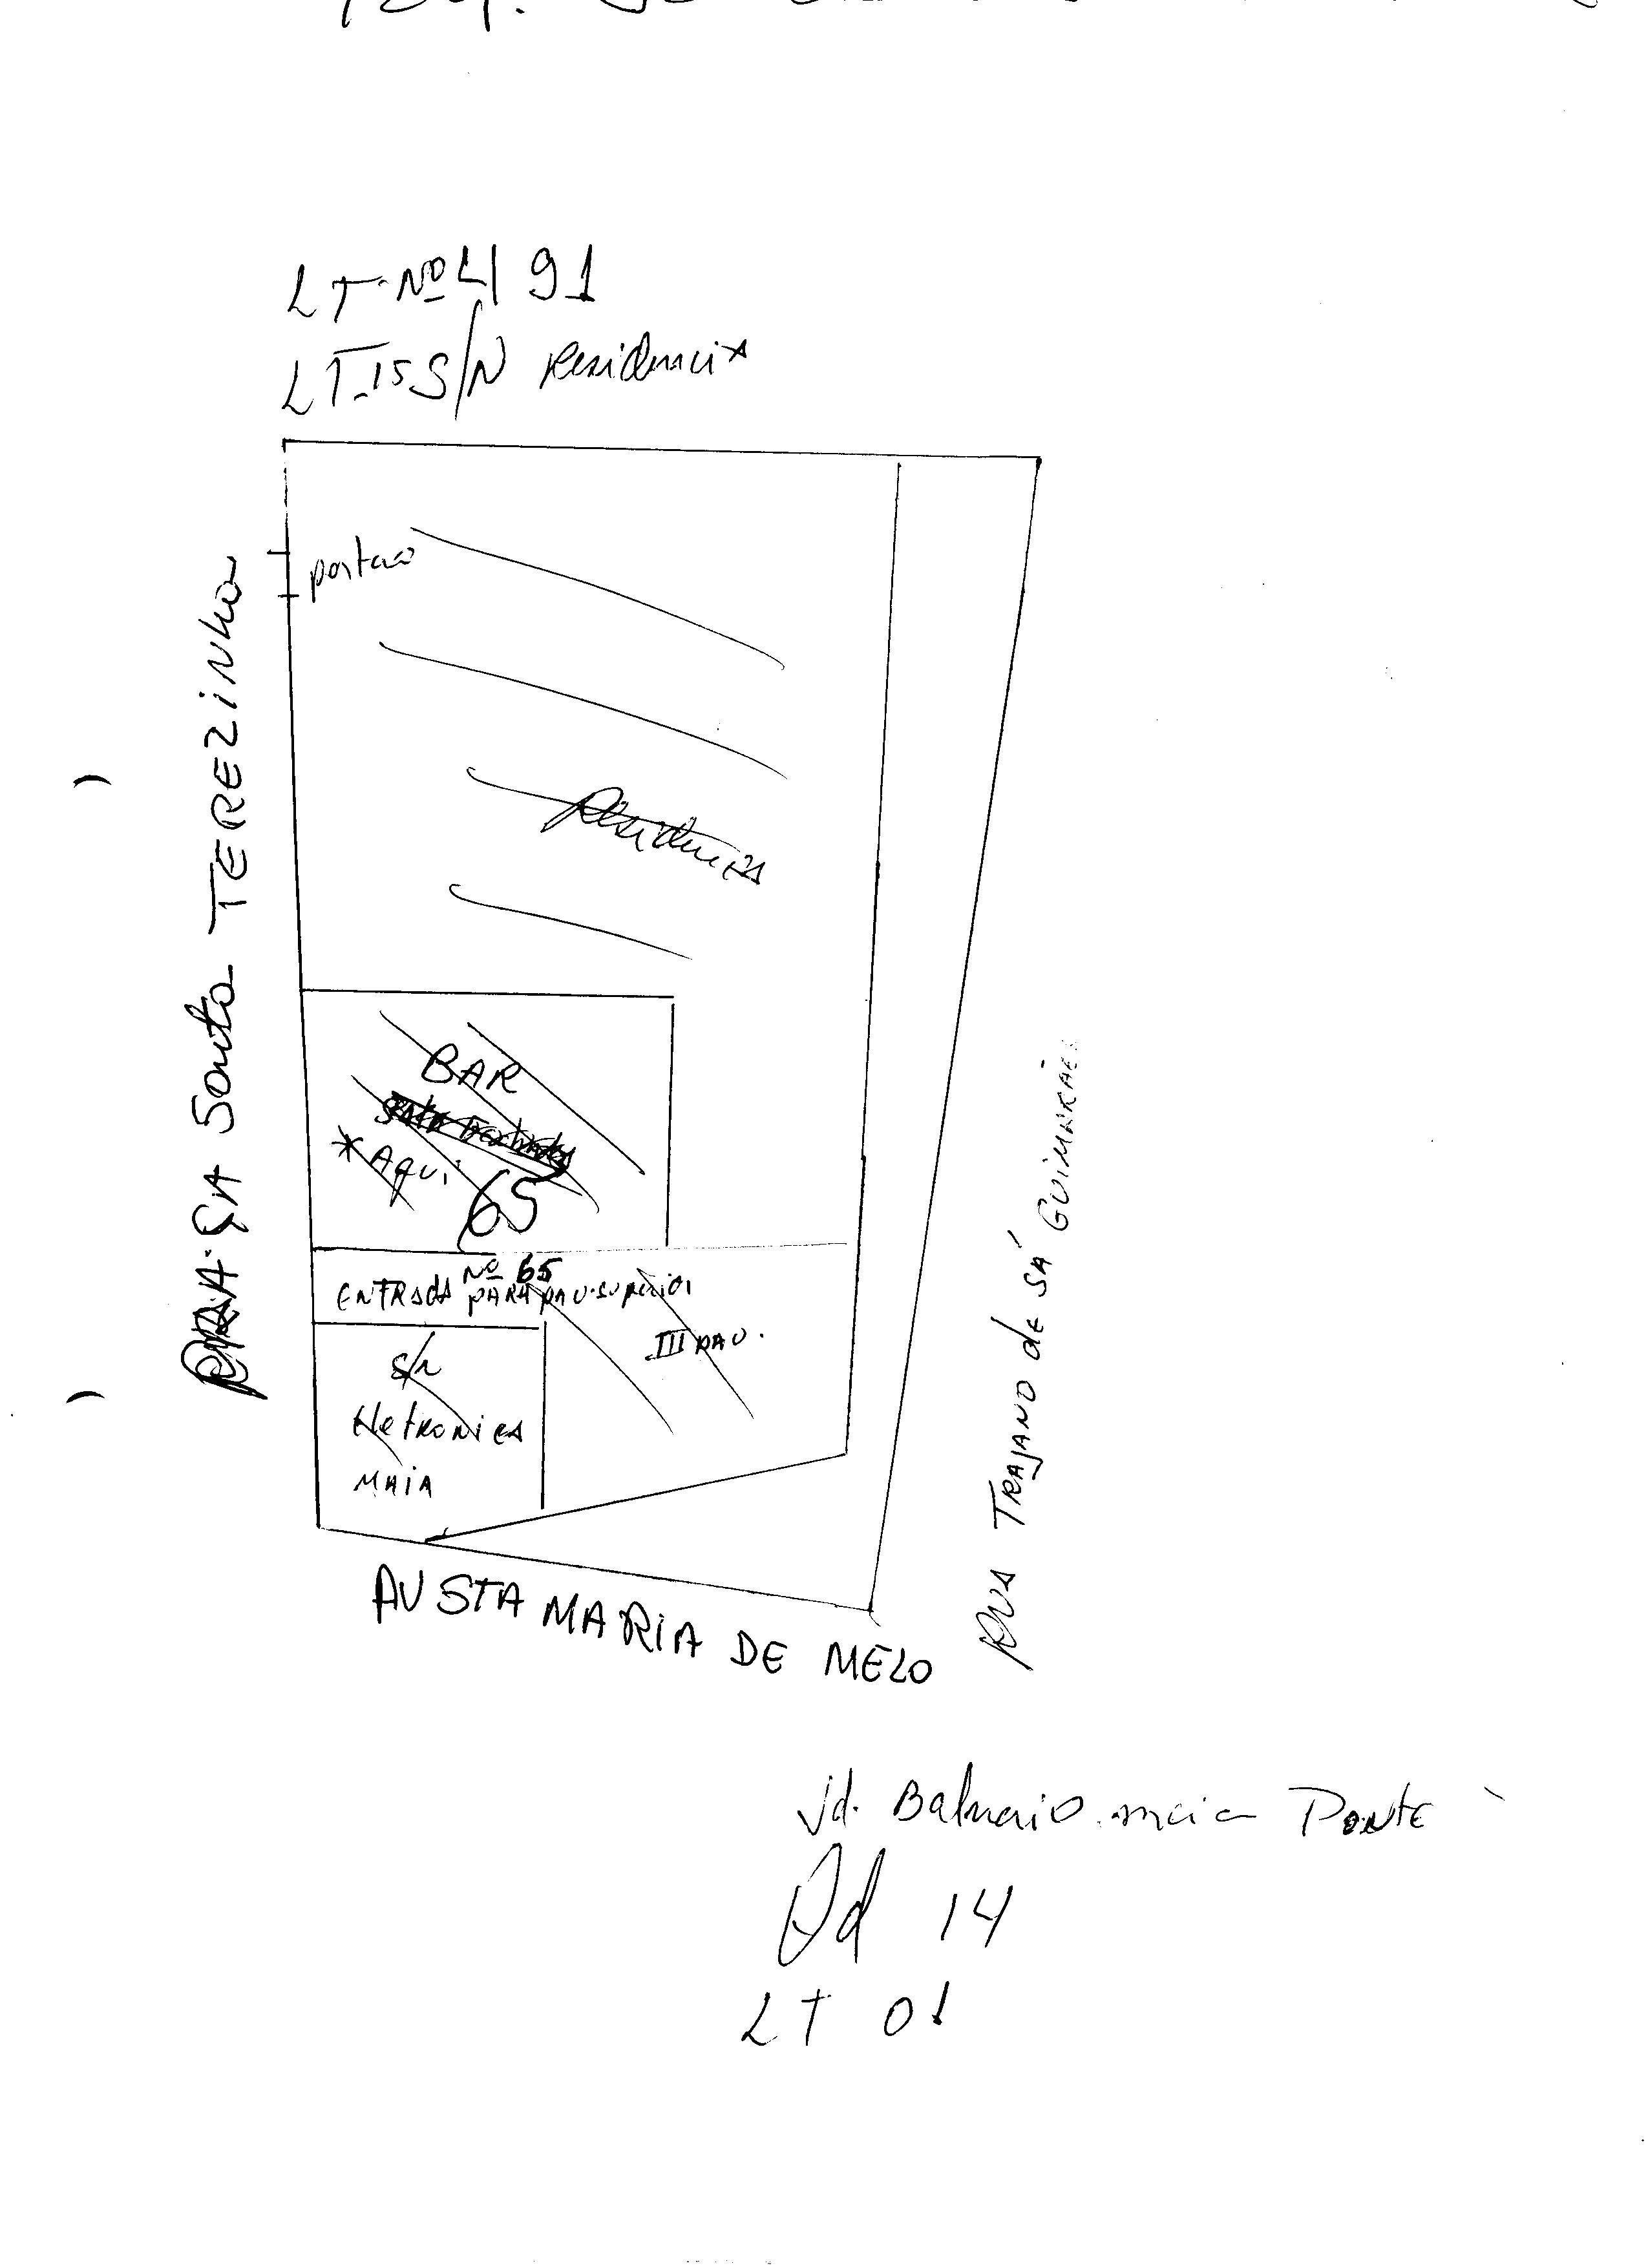 LT. Nº 4 91
LT-15 S/N Residencia
portao
Residencia
PRAÇA Santa TEREZINHA
BAR
* Aqui
65
Nº 65
ENTRADA PARA PAV. SUPERIOR
III PAV.
S/N
Eletronica
MAIA
AV STA MARIA DE MELO
RUA TRAJANO de SÁ GUIMARÃES
Jd. Balneario meia PONTE
Qd 14
LT 01